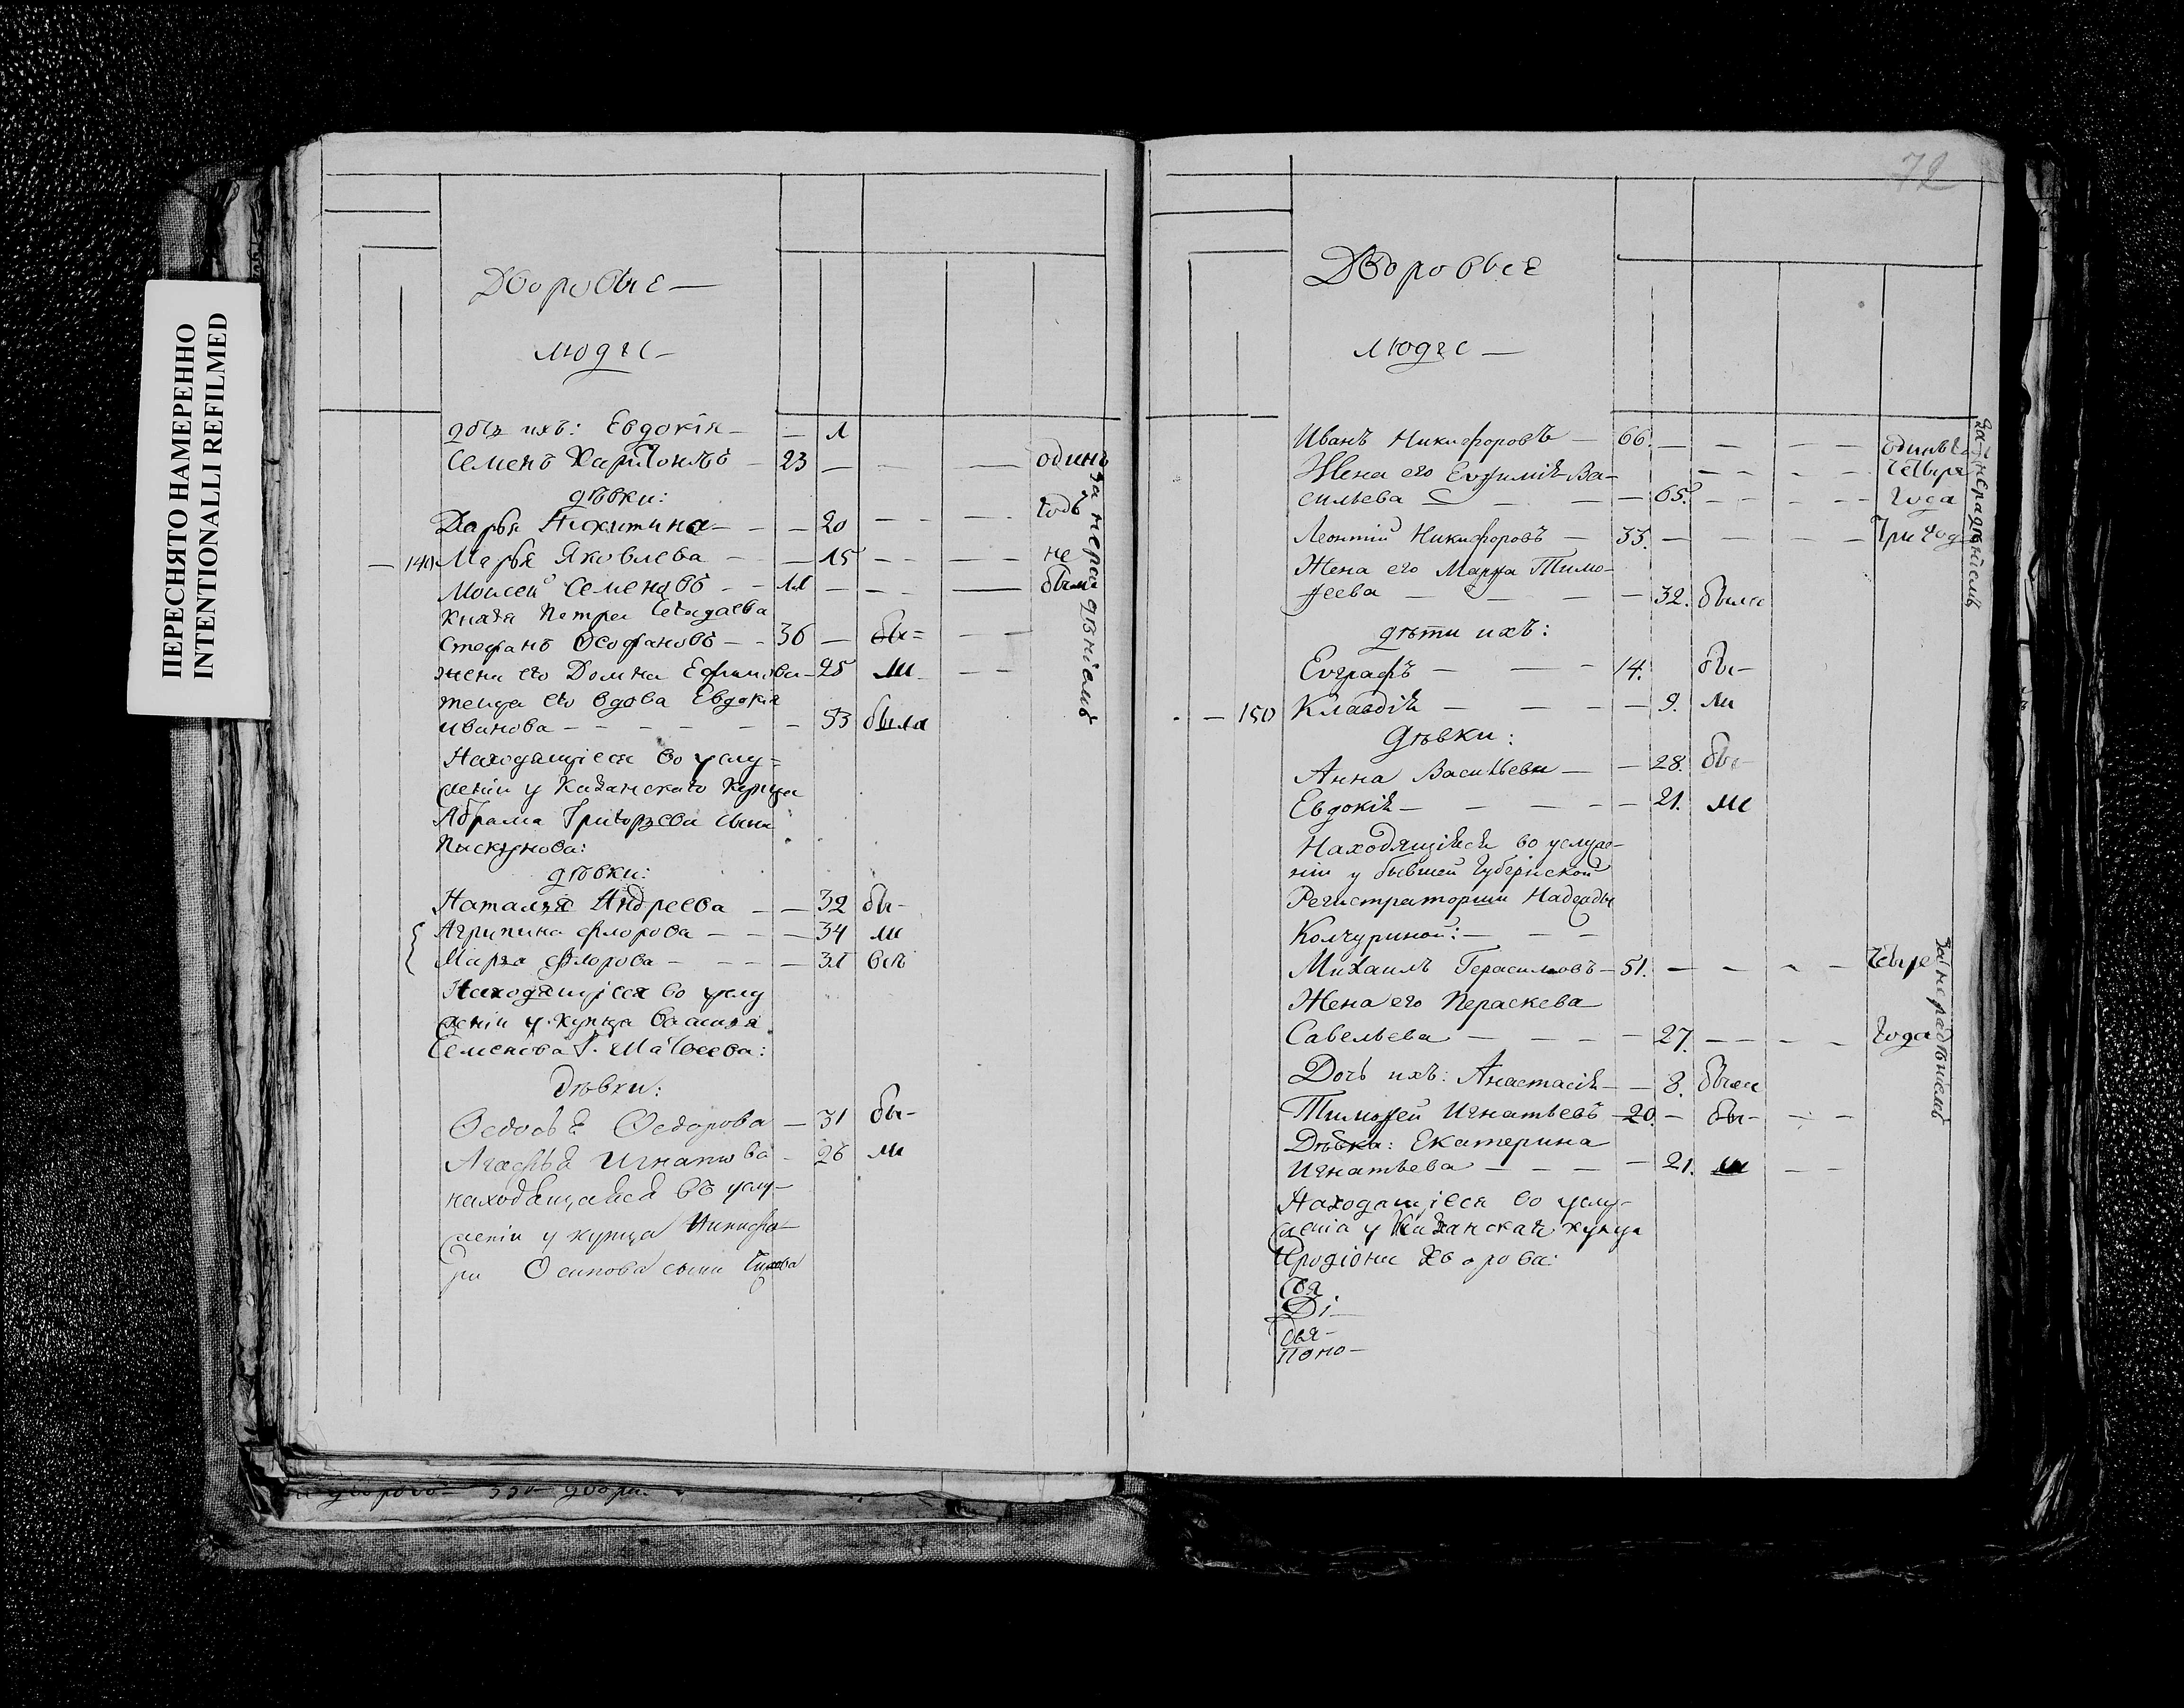 ПЕРЕСНЯТО НАМЕРЕННО
INTENTIONALLI REFILMED
Дворовые —
люди —
дочь ихъ: Евдокія — — 1
Семенъ Харитоновъ — 23 — — — одинъ
дѣвки: годъ
Дарья Никитина — — 20 — — —
— 140 Марья Яковлева — — 15 — — — не
Моисей Семеновъ — 11 — — — были
за нерадѣніемъ
Князя Петра
Стефанъ Ѳеофановъ — 36 — бы= — —
жена его Домна Ефимова — 25 ли — —
теща его вдова Евдокія
Иванова — — — — — 53 была
Находящіеся во услу=
женіи у Казанскаго Купца
Абрама Григорьева сына
Пискунова:
дѣвки:
Наталья Андреева — — 32 бы-
Агрипина Флорова — — — 34 ли
Марѳа Флорова — — — — 31 всѣ
Находящіеся во услу
женіи у купца Василья
Семенова Матвеева:
Дѣвки:
Ѳедосья Ѳедорова — 31 бы-
Агафья Игнатова — 26 ли
находящаяся въ услу-
женіи у купца Никифо-
ра Осипова сына
72
Дворовые
люди —
Иванъ Никифоровъ — 66. — — — — одинъ
Жена его Евфимія Ва- — — — — четыре
сильева — — — 65. — — — — года
Леонтій Никифоровъ — 33. — — — — Три года
за нерадѣніемъ
Жена его Марѳа Тимо-
феева — — — — 32. были
дѣти ихъ:
Евграфъ — — — 14. бы-
— 150 Клавдія — — — — 9. ли
Дѣвки:
Анна Васильева — — 28. бы-
Евдокія — — — — — 21. ли
Находящійся во услуже-
ніи у бывшей Губернской
Регистраторши Надежды
Колчуриной: — — —
Михаилъ Герасимовъ — 51. — — — — Четыре
Жена его Пераскева
Савельева — — — — 27. — — — — года
за нерадѣніемъ
Дочь ихъ: Анастасія — — 8. были
Тимофей Игнатьевъ — 20. — бы- — —
Дѣвка: Екатерина
Игнатьева — — — — 21. ли — —
Находящіеся во услу-
женіи у Казанскаго купца
Иродіона Хворова:
Свя
Ді —
дья-
Поно-